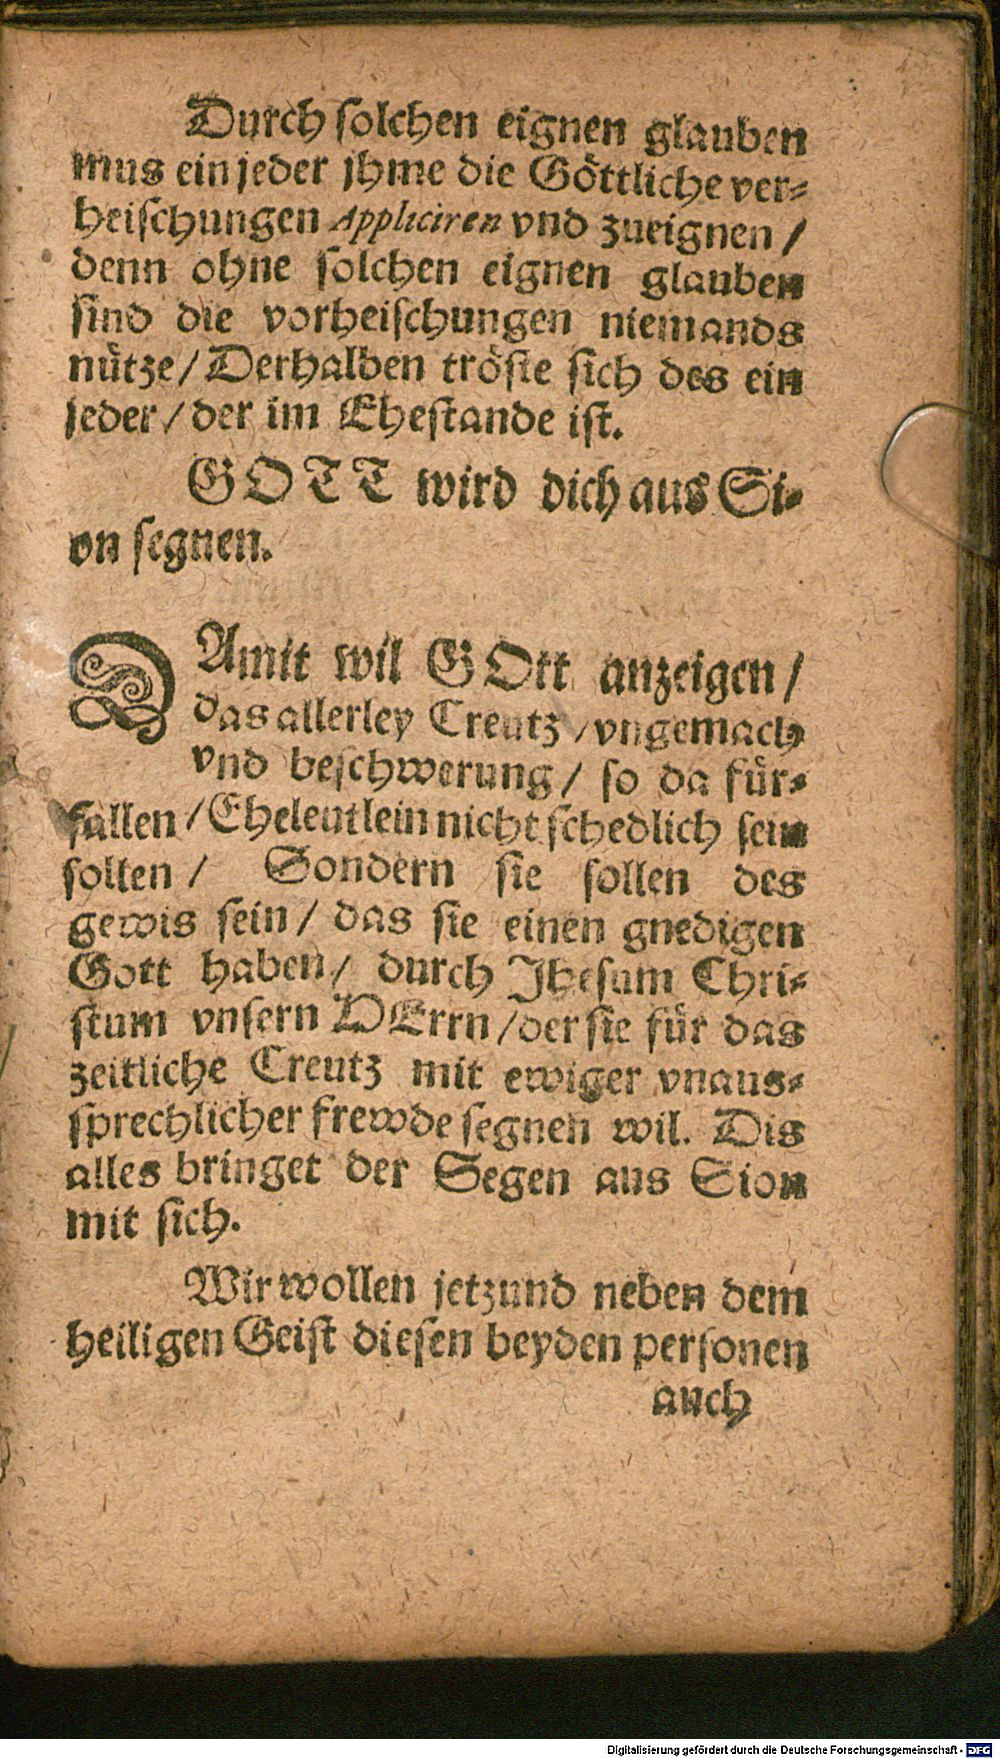 Durch solchen eignen glauben
mus ein jeder jhme die Göttliche ver-
heischungen Appliciren vnd zueignen /
denn ohne solchen eignen glauben
sind die vorheischungen niemands
nütze / Derhalben tröste sich des ein
jeder / der im Ehestande ist.
GOTT wird dich aus Si-
on segnen.
DAmit wil GOtt anzeigen /
das allerley Creutz / vngemach
vnd beschwerung / so da für-
fallen / Eheleutlein nicht schedlich sein
sollen / Sondern sie sollen des
gewis sein / das sie einen gnedigen
Gott haben / durch Jhesum Chri-
stum vnsern HErrn / der sie für das
zeitliche Creutz mit ewiger vnaus-
sprechlicher frewde segnen wil. Dis
alles bringet der Segen aus Sion
mit sich.
Wir wollen jetzund neben dem
heiligen Geist diesen beyden personen
auch
Digitalisierung gefördert durch die Deutsche Forschungsgemeinschaft - DFG